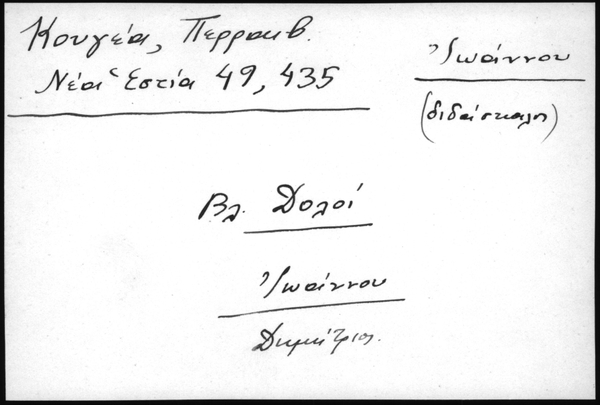 Κουγέα, Περραιβ.
Νέα Ἑστία 49, 435
Ἰωάννου
(διδάσκαλοι)
Βλ. Δολοί
Ἰωάννου
Δημήτριος.